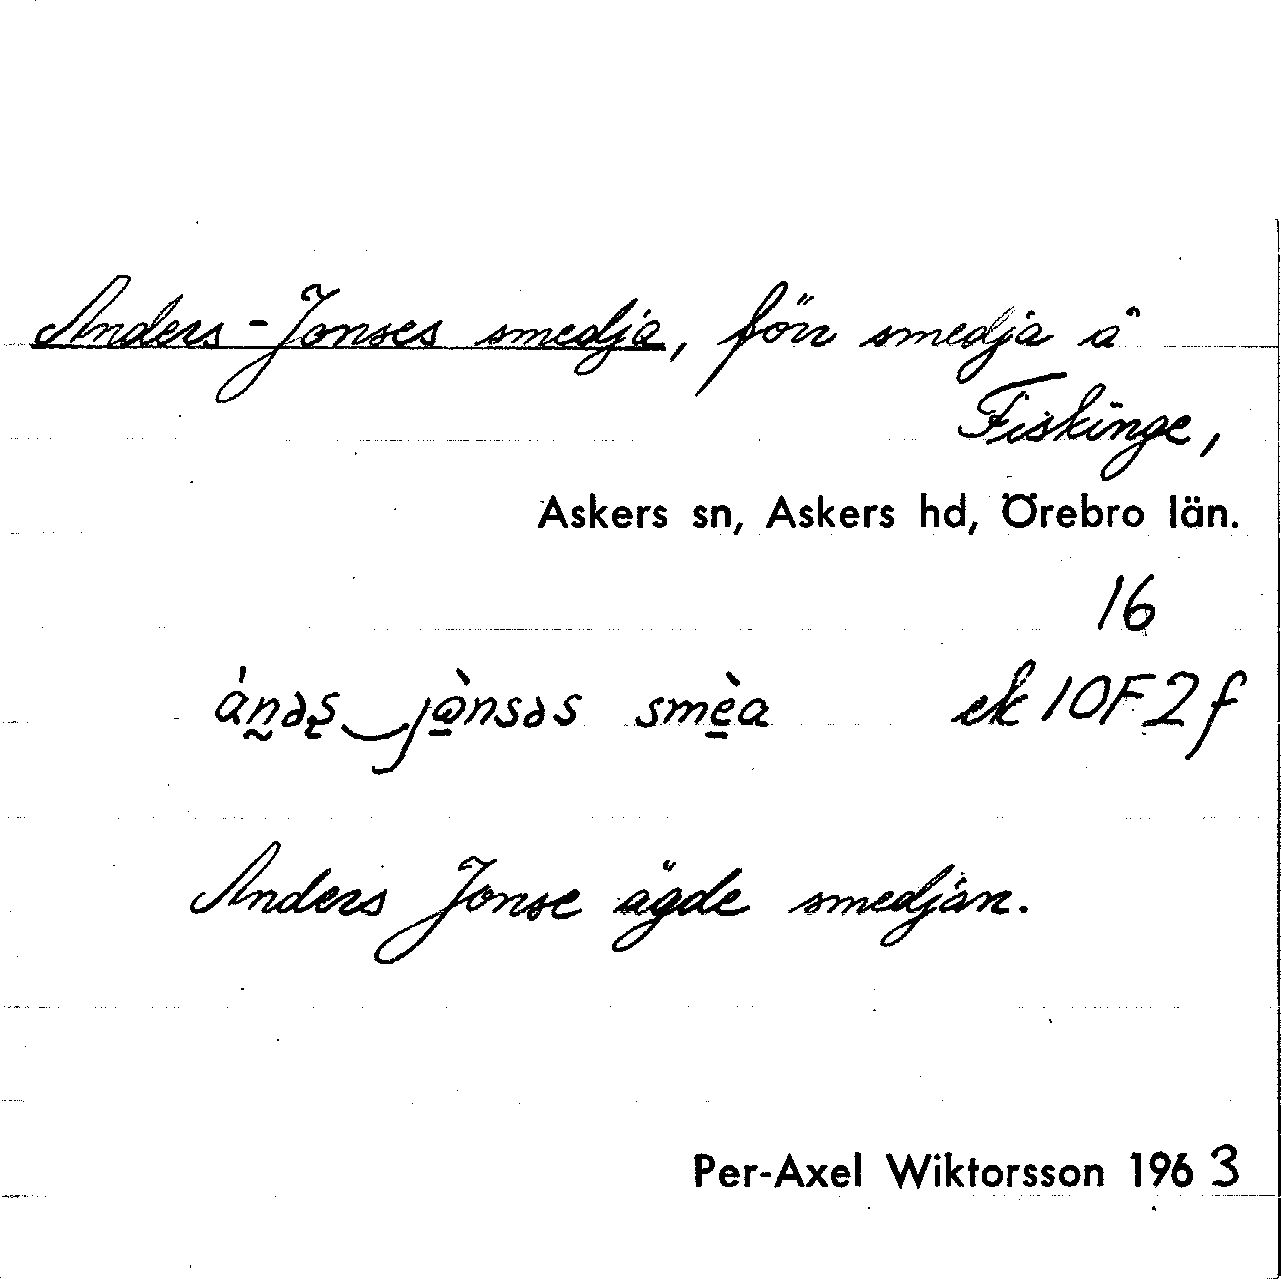 Anders-Jonses smedja, förr smedja å
Fiskinge,
Askers sn, Askers hd, Örebro län.
16
ánəş jònsəs smèa ek 10F2f
Anders Jonse ägde smedjan.
Per-Axel Wiktorsson 1963